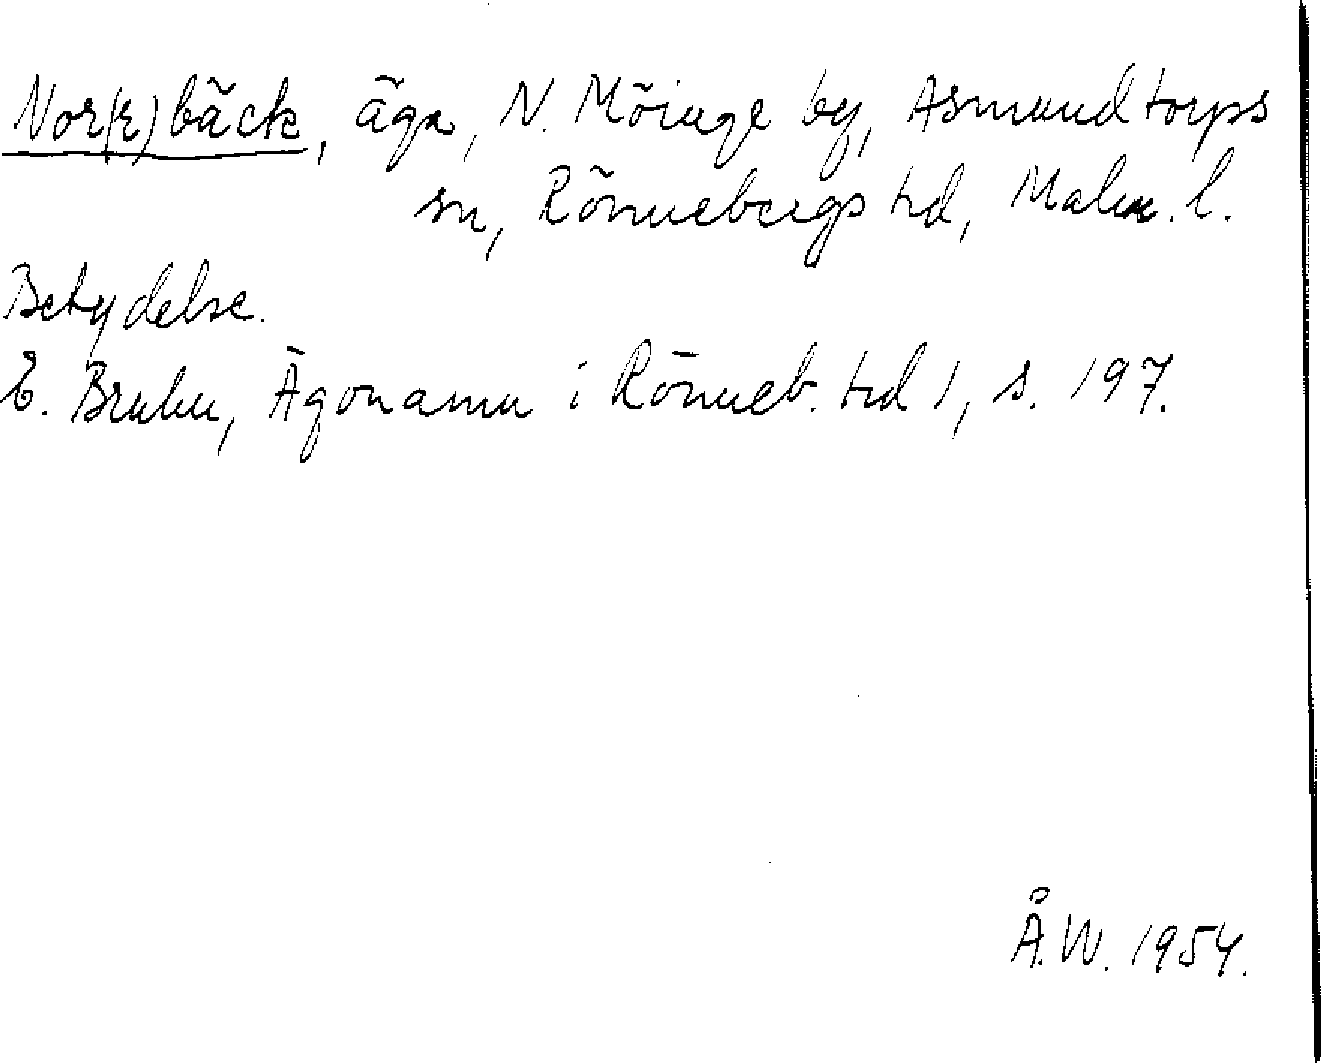 Nor(r)bäck, äga, N. Möinge by, Asmundtorps
sn, Rönnebergs hd, Malm. l.
Betydelse.
E. Bruhn, Ägonamn i Rönneb. hd 1, s. 197.
Å.W. 1954.